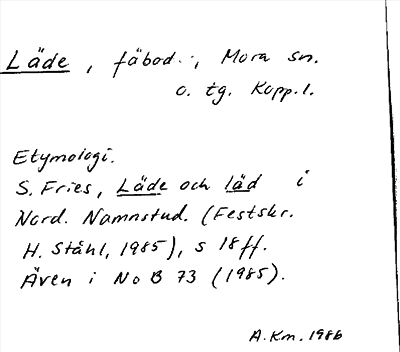 Läde, fäbod., Mora sn.
o. tg. Kopp.l.
Etymologi.
S. Fries, Läde och läd i
Nord. Namnstud. (Festskr.
H. Ståhl, 1985), s 18 ff.
Även i NoB 73 (1985).
A.Km. 1986